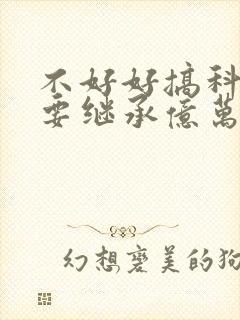 不好好搞科
要继承億萬
幻想褒美的狗